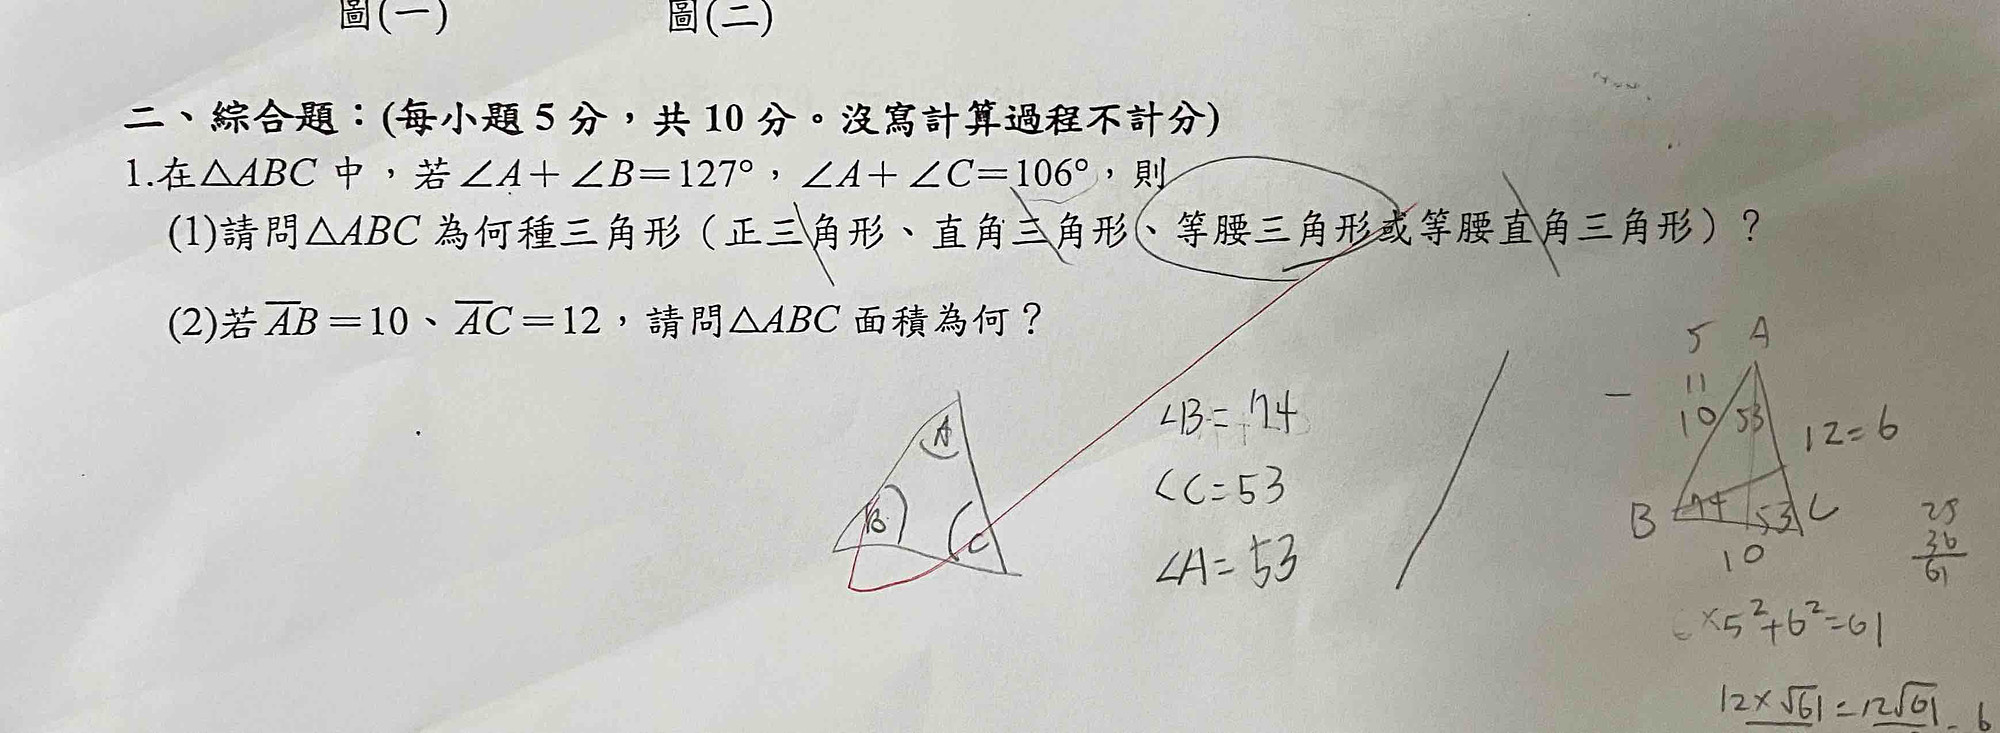 圖(一) 圖(二)
二、綜合題：(每小題 5 分，共 10 分。沒寫計算過程不計分)
1.在△ABC 中，若∠A+∠B=127°，∠A+∠C=106°，則
(1)請問△ABC 為何種三角形（正三角形、直角三角形、等腰三角形或等腰直角三角形）？
(2)若 AB=10、AC=12，請問△ABC 面積為何？
A
B
C
∠B=74
∠C=53
∠A=53
5 A
11
10 53
12=6
B 74 53 C
10
25
36
61
×5²+6²=61
12×√61=12√61
6